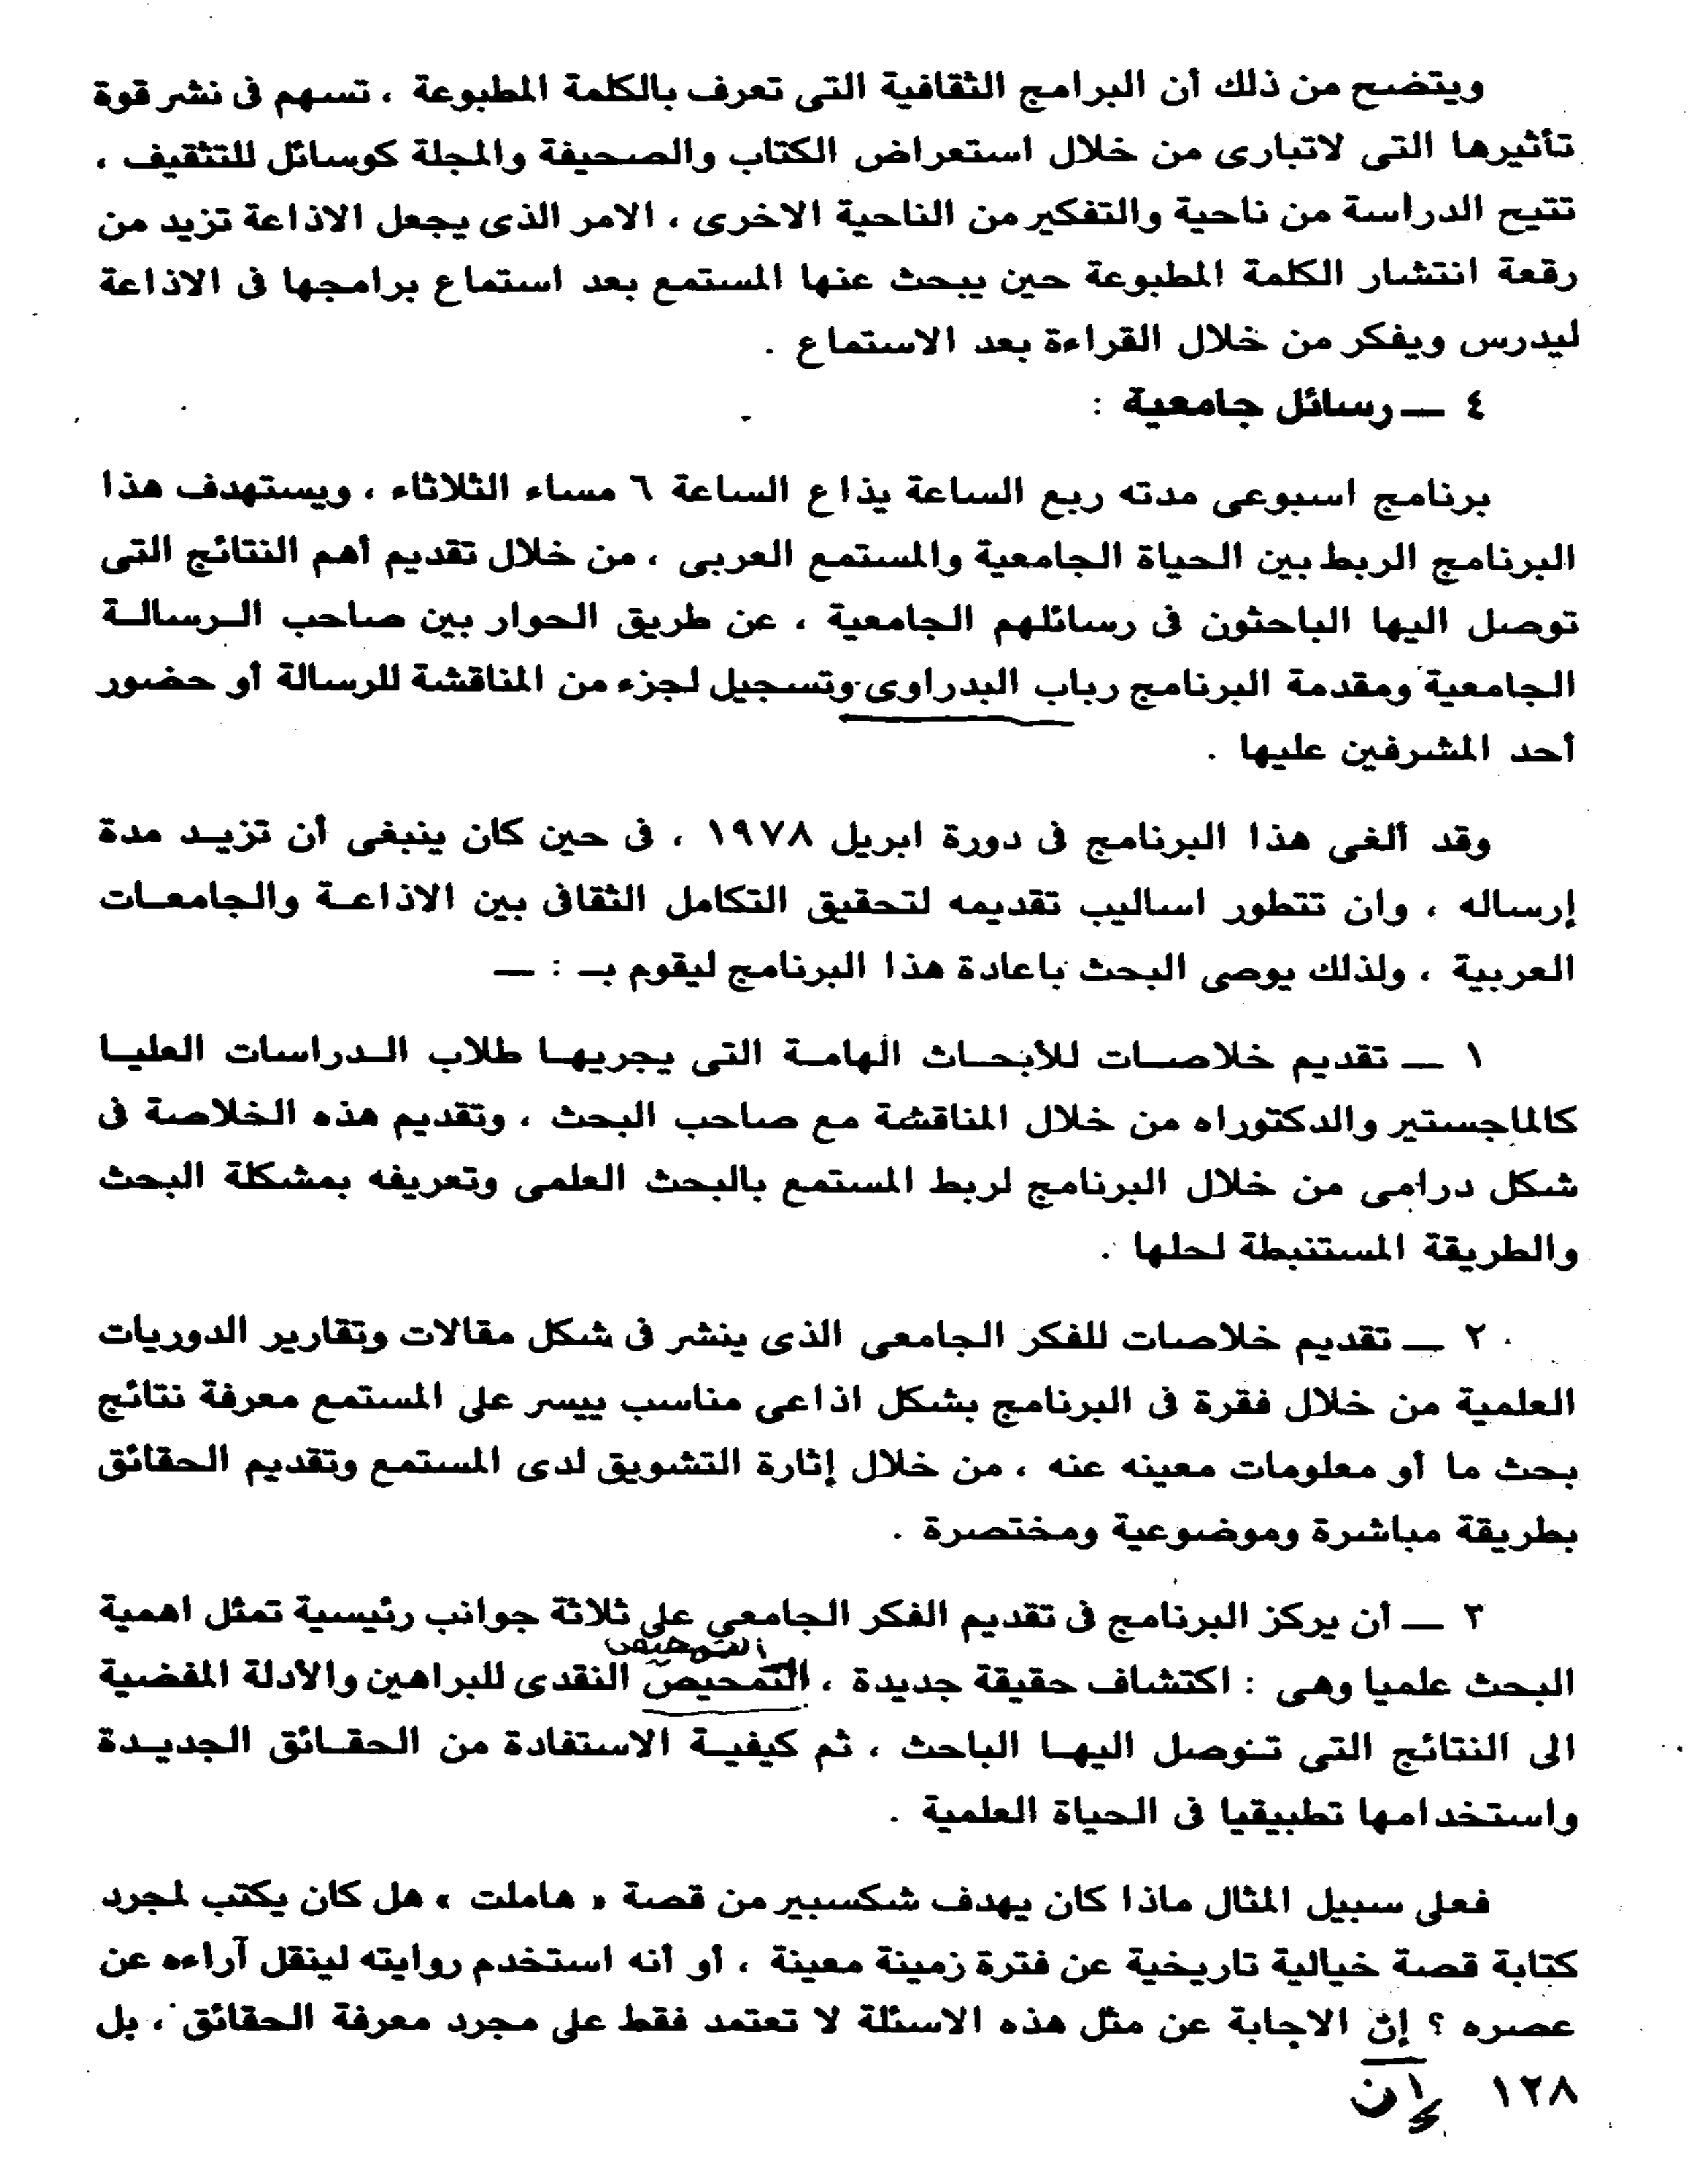 ويتضح من ذلك أن البرامج الثقافية التى تعرف بالكلمة المطبوعة ، تسهم فى نشر قوة
تأثيرها التى لاتبارى من خلال استعراض الكتاب والصحيفة والمجلة كوسائل للتثقيف ،
تتيح الدراسة من ناحية والتفكير من الناحية الاخرى ، الامر الذى يجعل الاذاعة تزيد من
رقعة انتشار الكلمة المطبوعة حين يبحث عنها المستمع بعد استماع برامجها فى الاذاعة
ليدرس ويفكر من خلال القراءة بعد الاستماع .
٤ — رسائل جامعية :
برنامج اسبوعى مدته ربع الساعة يذاع الساعة ٦ مساء الثلاثاء ، ويستهدف هذا
البرنامج الربط بين الحياة الجامعية والمستمع العربى ، من خلال تقديم أهم النتائج التى
توصل اليها الباحثون فى رسائلهم الجامعية ، عن طريق الحوار بين صاحب الـرسالـة
الجامعية ومقدمة البرنامج رباب البدراوى وتسجيل لجزء من المناقشة للرسالة أو حضور
أحد المشرفين عليها .
وقد ألغى هذا البرنامج فى دورة ابريل ١٩٧٨ ، فى حين كان ينبغى أن تزيـد مدة
إرساله ، وان تتطور اساليب تقديمه لتحقيق التكامل الثقافى بين الاذاعـة والجامعـات
العربية ، ولذلك يوصى البحث باعادة هذا البرنامج ليقوم بـ : —
١ — تقديم خلاصـات للأبحـاث الهامـة التى يجريهـا طلاب الـدراسات العليـا
كالماجستير والدكتوراه من خلال المناقشة مع صاحب البحث ، وتقديم هذه الخلاصة فى
شكل درامى من خلال البرنامج لربط المستمع بالبحث العلمى وتعريفه بمشكلة البحث
والطريقة المستنبطة لحلها .
٢ — تقديم خلاصات للفكر الجامعى الذى ينشر فى شكل مقالات وتقارير الدوريات
العلمية من خلال فقرة فى البرنامج بشكل اذاعى مناسب ييسر على المستمع معرفة نتائج
بحث ما أو معلومات معينه عنه ، من خلال إثارة التشويق لدى المستمع وتقديم الحقائق
بطريقة مباشرة وموضوعية ومختصرة .
٣ — أن يركز البرنامج فى تقديم الفكر الجامعى على ثلاثة جوانب رئيسية تمثل اهمية
البحث علميا وهى : اكتشاف حقيقة جديدة ، التمحيص النقدى للبراهين والأدلة المفضية
الى النتائج التى تـوصل اليهـا الباحث ، ثم كيفيـة الاستفادة من الحقـائق الجديـدة
واستخدامها تطبيقيا فى الحياة العلمية .
فعلى سبيل المثال ماذا كان يهدف شكسبير من قصة « هاملت » هل كان يكتب لمجرد
كتابة قصة خيالية تاريخية عن فترة زمينة معينة ، أو أنه استخدم روايته لينقل آراءه عن
عصره ؟ إن الاجابة عن مثل هذه الاسئلة لا تعتمد فقط على مجرد معرفة الحقائق ، بل
١٢٨ إن